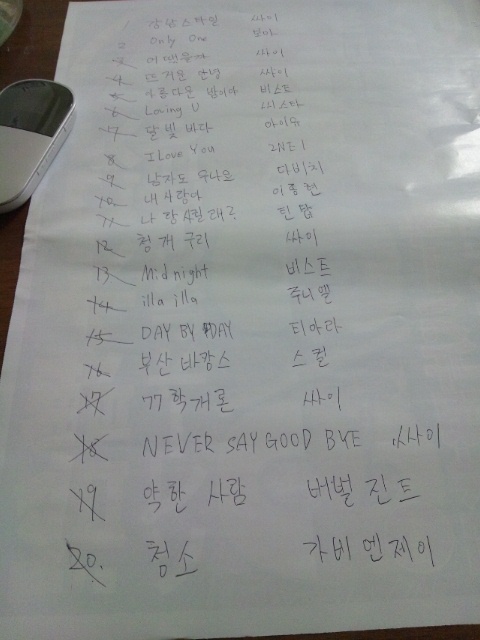 1 강남스타일 싸이
2 Only One 보아
3 어땠을까 싸이
4 뜨거운 안녕 싸이
5 아름다운 밤이야 비스트
6 Loving U 씨스타
7 달빛 바다 아이유
8 I Love You 2NE1
9 남자도 우나요 다비치
10 내 사랑아 이종현
11 나랑 사귈래? 틴탑
12 청개구리 싸이
13 Midnight 비스트
14 illa illa 주니엘
15 DAY BY DAY 티아라
16 부산 바캉스 스컬
17 77학개론 싸이
18 NEVER SAY GOOD BYE 싸이
19 약한 사람 버벌진트
20. 청소 가비엔제이